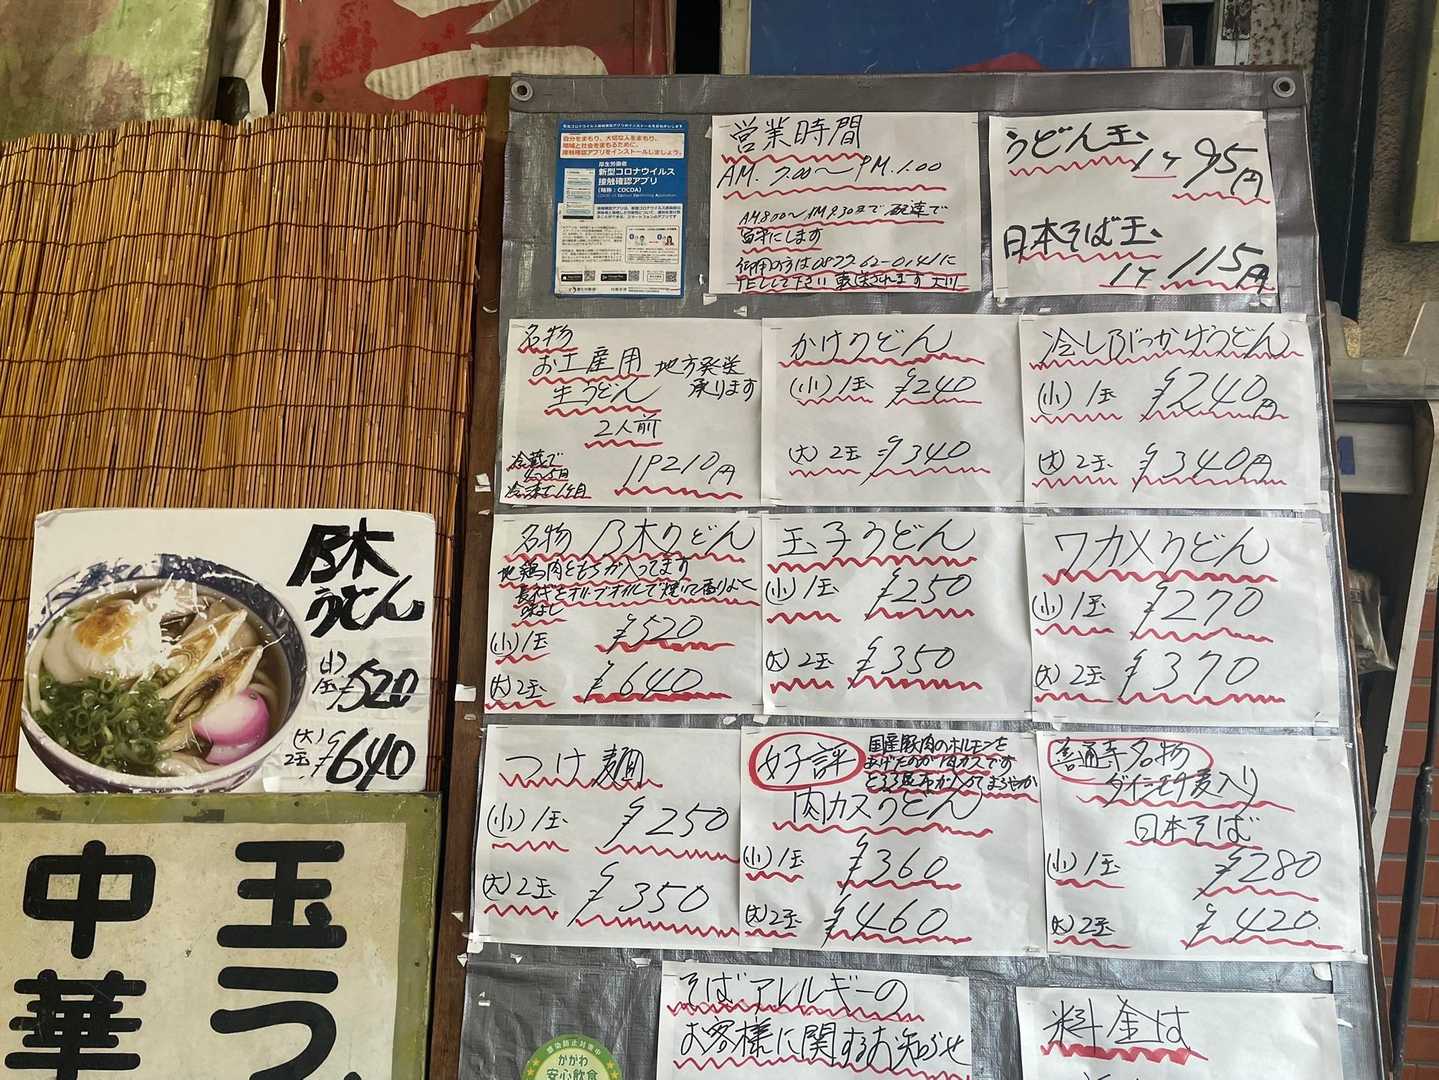 自分をまもり、大切な人をまもり、
地域と社会をまもるために、
接触確認アプリをインストールしましょう。
厚生労働省
新型コロナウイルス
接触確認アプリ
(略称：COCOA)
営業時間
AM.7.00〜PM.1.00
AM8.00〜AM9.30まで 配達で
留守にします
御用の方は0877 62-0141に
TELして下さい 転送されます 大川
うどん玉
1ケ 95円
日本そば玉
1ケ 115円
名物
お土産用 地方発送
生うどん 承ります
2人前
冷蔵で
冷凍で1ヶ月
1P210円
かけうどん
(小)1玉 ¥240
(大)2玉 ¥340
冷しぶっかけうどん
(小)1玉 ¥240円
(大)2玉 ¥340円
名物 乃木うどん
地鶏肉ともちが入ってます
長ネギをオリーブオイルで焼いて香りよく
味よし
(小)1玉 ¥520
(大)2玉 ¥640
玉子うどん
(小)1玉 ¥250
(大)2玉 ¥350
ワカメうどん
(小)1玉 ¥270
(大)2玉 ¥370
乃木
うどん
(小)
1玉 ¥520
(大)
2玉 ¥640
つけ麺
(小)1玉 ¥250
(大)2玉 ¥350
好評
国産豚肉のホルモンを
あげたのが肉カスです
とろろ昆布が入ってまろやか
肉カスうどん
(小)1玉 ¥360
(大)2玉 ¥460
善通寺名物
ダイシモチ麦入り
日本そば
(小)1玉 ¥280
(大)2玉 ¥420
玉う
中華
そばアレルギーの
お客様に関するお知らせ
料金は
かがわ
安心飲食